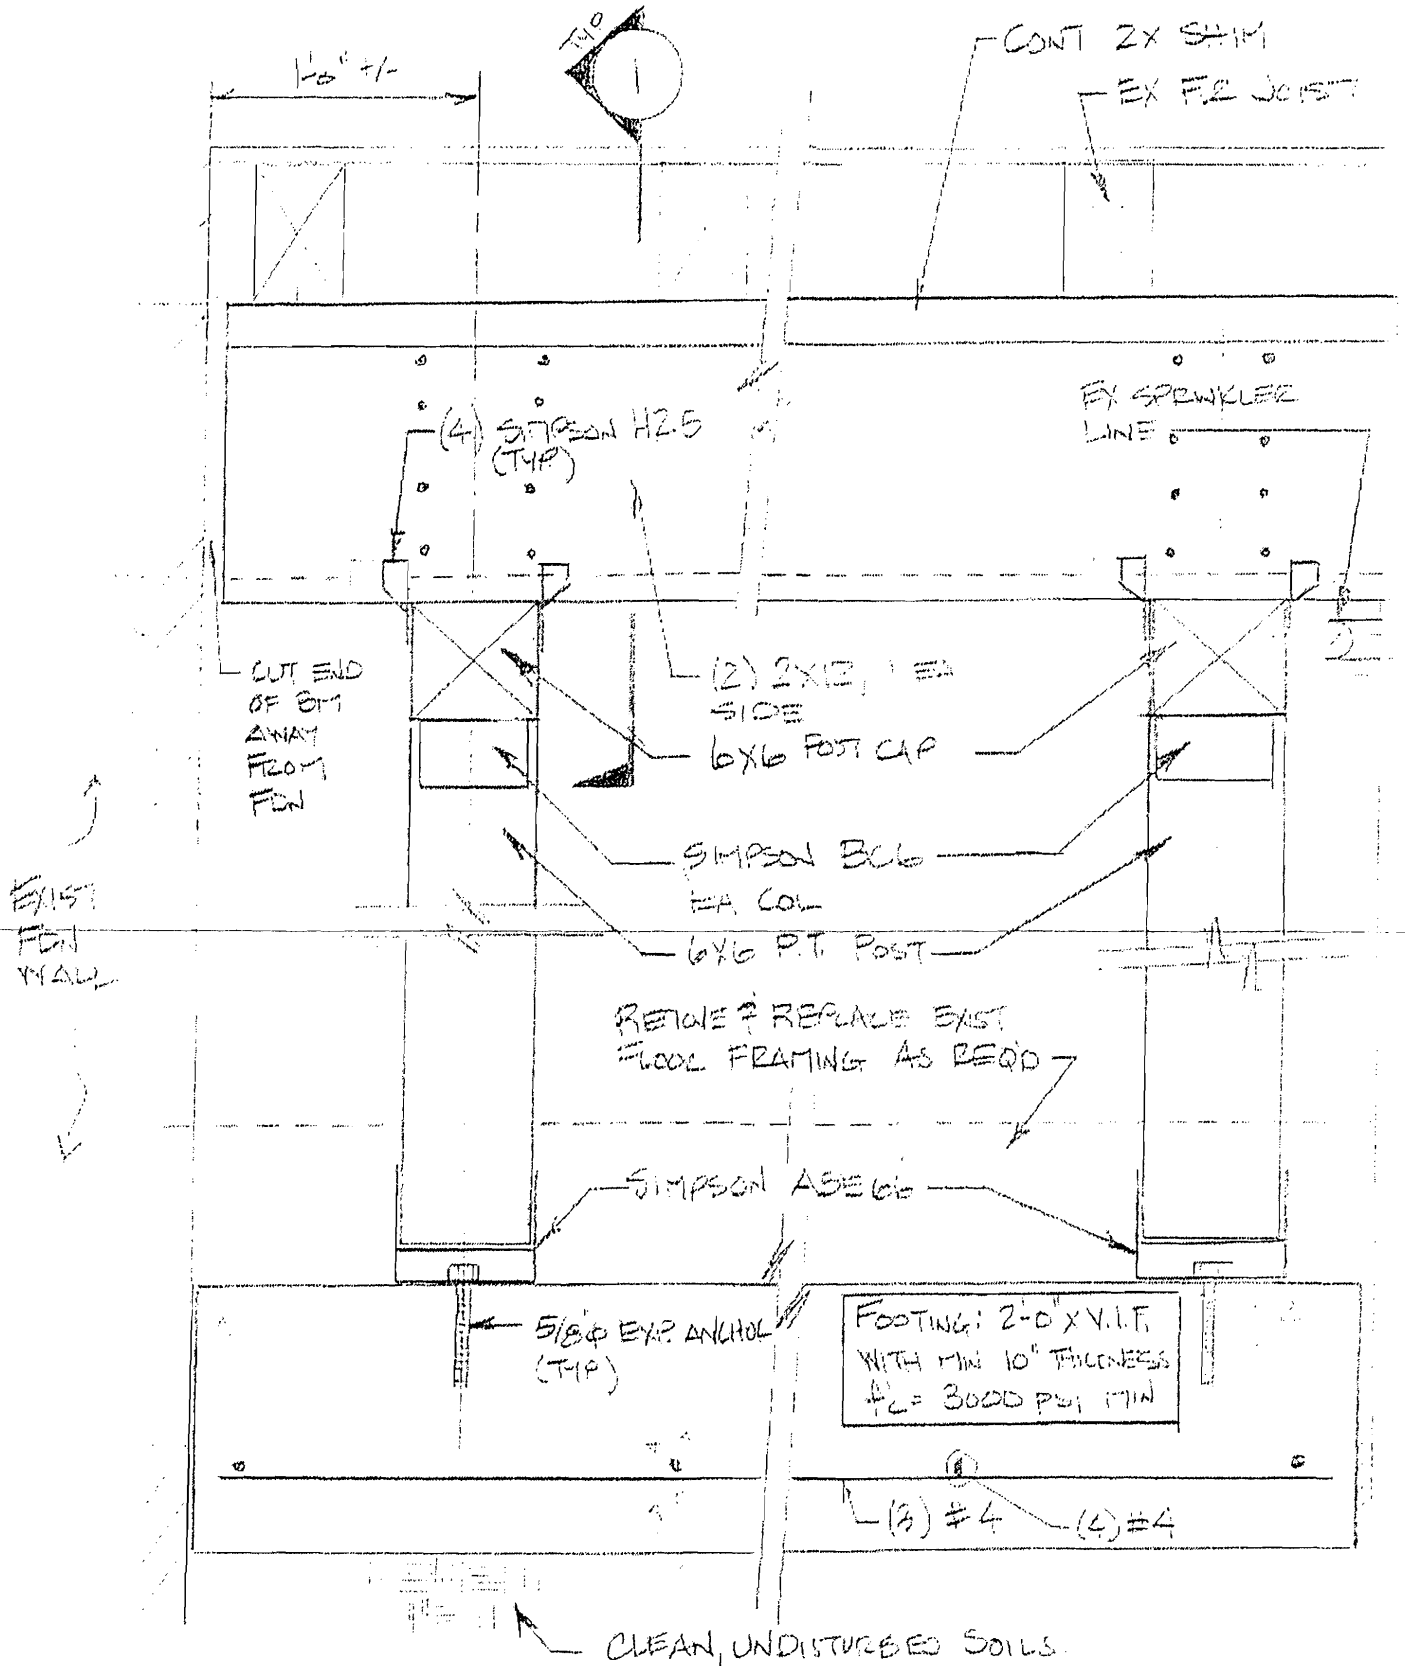 1'-0" +/-
TYP
1
CONT 2X SHIM
EX FLR JOIST
(4) SIMPSON H2.5
(TYP)
EX SPRINKLER
LINE
CUT END
OF BM
AWAY
FROM
FDN
(2) 2X12, 1 EA
SIDE
6X6 POST CAP
SIMPSON BC6
EA COL
6X6 P.T. POST
EXIST
FDN
WALL
REMOVE & REPLACE EXIST
FLOOR FRAMING AS REQ'D
SIMPSON ABE66
5/8φ EXP. ANCHOR
(TYP)
FOOTING: 2'-0" X V.I.F.
WITH MIN 10" THICKNESS
f'c = 3000 psi MIN
(3) #4
(4) #4
CLEAN, UNDISTURBED SOILS